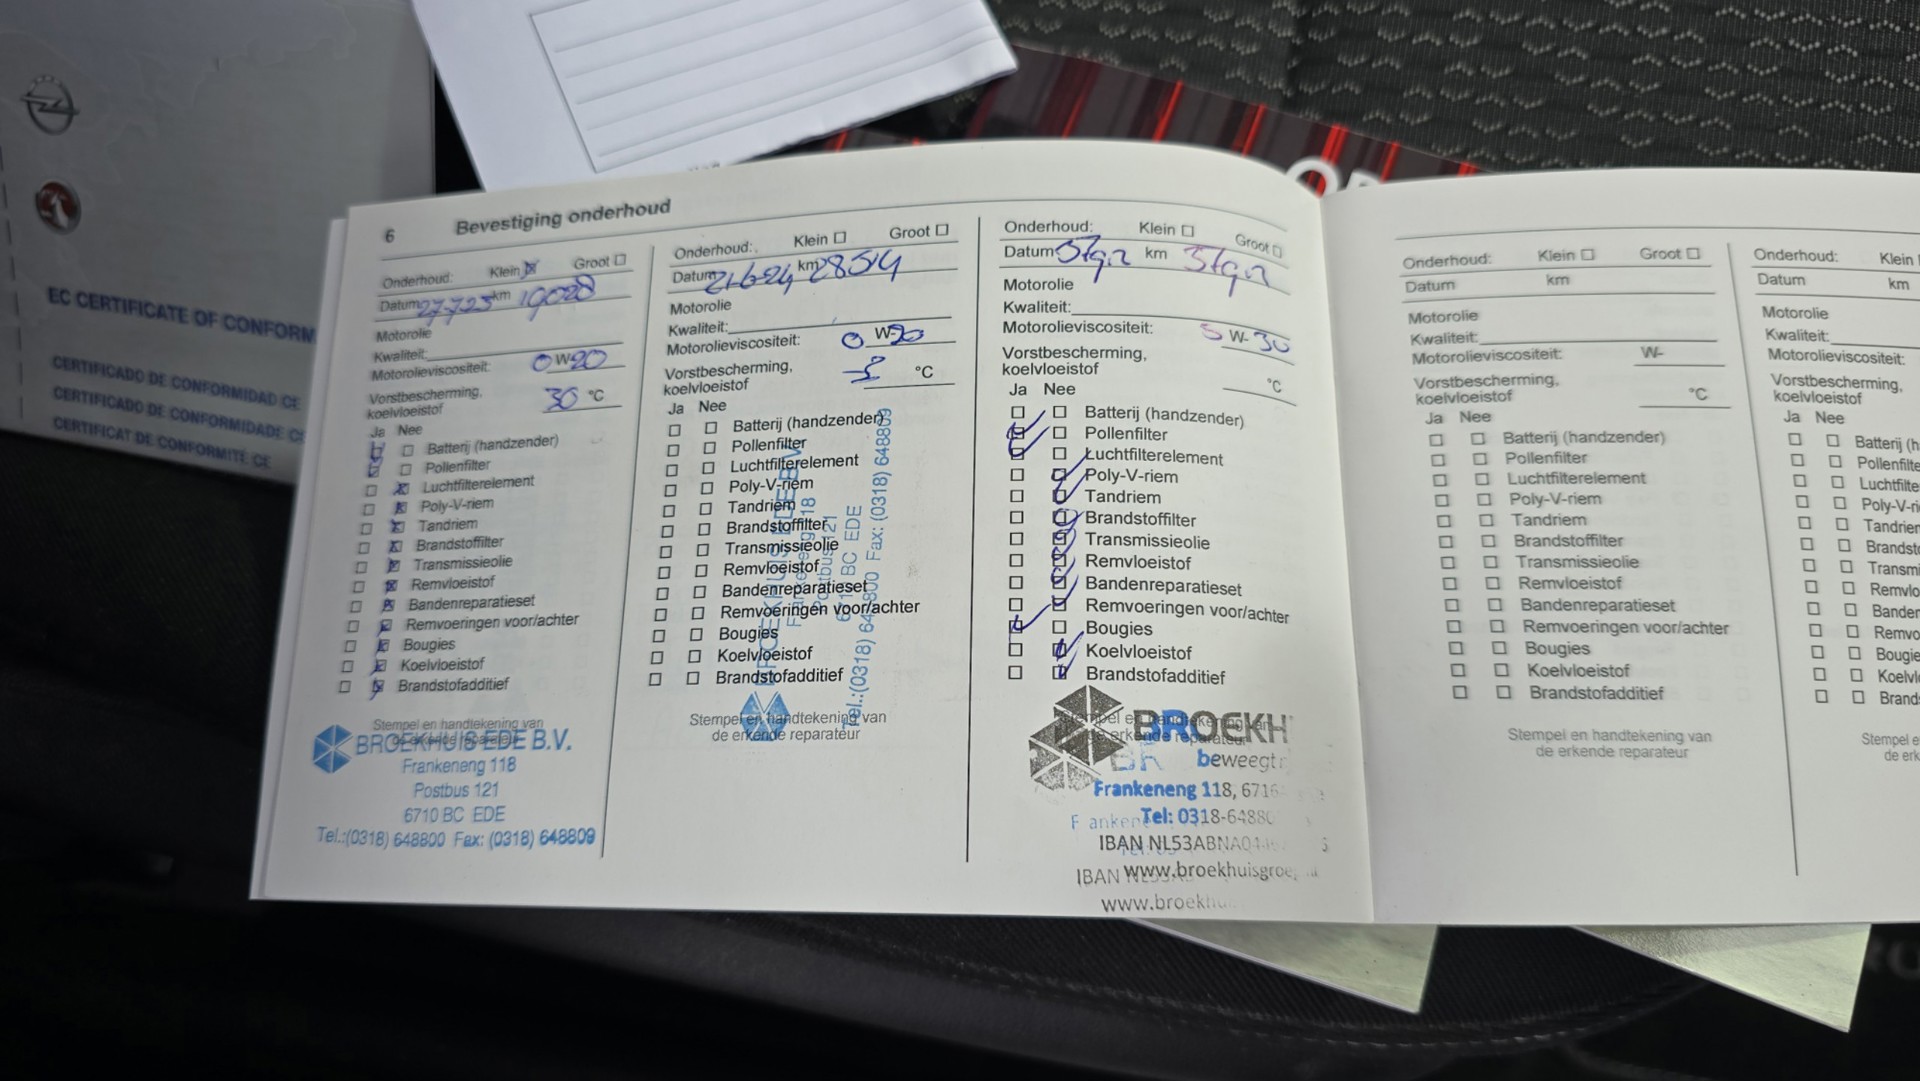 EC CERTIFICATE OF CONFORM
CERTIFICADO DE CONFORMIDAD CE
CERTIFICADO DE CONFORMIDADE
CERTIFICAT DE CONFORMITÉ CE
6 Bevestiging onderhoud
Onderhoud: Klein Groot
Datum 27-7-23 km 19028
Motorolie
Kwaliteit:
Motorolieviscositeit: 0 W-20
Vorstbescherming,
koelvloeistof 30 °C
Ja Nee
Batterij (handzender)
Pollenfilter
Luchtfilterelement
Poly-V-riem
Tandriem
Brandstoffilter
Transmissieolie
Remvloeistof
Bandenreparatieset
Remvoeringen voor/achter
Bougies
Koelvloeistof
Brandstofadditief
Stempel en handtekening van
de erkende reparateur
BROEKHUIS EDE B.V.
Frankeneng 118
Postbus 121
6710 BC EDE
Tel.:(0318) 648800 Fax: (0318) 648809
Onderhoud: Klein Groot
Datum 21-6-24 km 28514
Motorolie
Kwaliteit:
Motorolieviscositeit: 0 W-20
Vorstbescherming,
koelvloeistof °C
Ja Nee
Batterij (handzender)
Pollenfilter
Luchtfilterelement
Poly-V-riem
Tandriem
Brandstoffilter
Transmissieolie
Remvloeistof
Bandenreparatieset
Remvoeringen voor/achter
Bougies
Koelvloeistof
Brandstofadditief
Stempel en handtekening van
de erkende reparateur
BROEKHUIS EDE B.V.
Frankeneng 118
Postbus 121
6710 BC EDE
Tel.:(0318) 648800 Fax: (0318) 648809
Onderhoud: Klein Groot
Datum km
Motorolie
Kwaliteit:
Motorolieviscositeit: 5 W-30
Vorstbescherming,
koelvloeistof °C
Ja Nee
Batterij (handzender)
Pollenfilter
Luchtfilterelement
Poly-V-riem
Tandriem
Brandstoffilter
Transmissieolie
Remvloeistof
Bandenreparatieset
Remvoeringen voor/achter
Bougies
Koelvloeistof
Brandstofadditief
Stempel en handtekening van
de erkende reparateur
BROEKH
beweegt
Frankeneng 118, 6716
Tel: 0318-6488
IBAN NL53ABNA04
www.broekhuisgroe
IBAN
www.broekhu
Onderhoud: Klein Groot
Datum km
Motorolie
Kwaliteit:
Motorolieviscositeit: W-
Vorstbescherming,
koelvloeistof °C
Ja Nee
Batterij (handzender)
Pollenfilter
Luchtfilterelement
Poly-V-riem
Tandriem
Brandstoffilter
Transmissieolie
Remvloeistof
Bandenreparatieset
Remvoeringen voor/achter
Bougies
Koelvloeistof
Brandstofadditief
Stempel en handtekening van
de erkende reparateur
Onderhoud: Klein
Datum km
Motorolie
Kwaliteit:
Motorolieviscositeit:
Vorstbescherming,
koelvloeistof
Ja Nee
Batterij (h
Pollenfilte
Luchtfilte
Poly-V-ri
Tandrien
Brandsto
Transmi
Remvlo
Banden
Remvo
Bougie
Koelvl
Brands
Stempel e
de erk